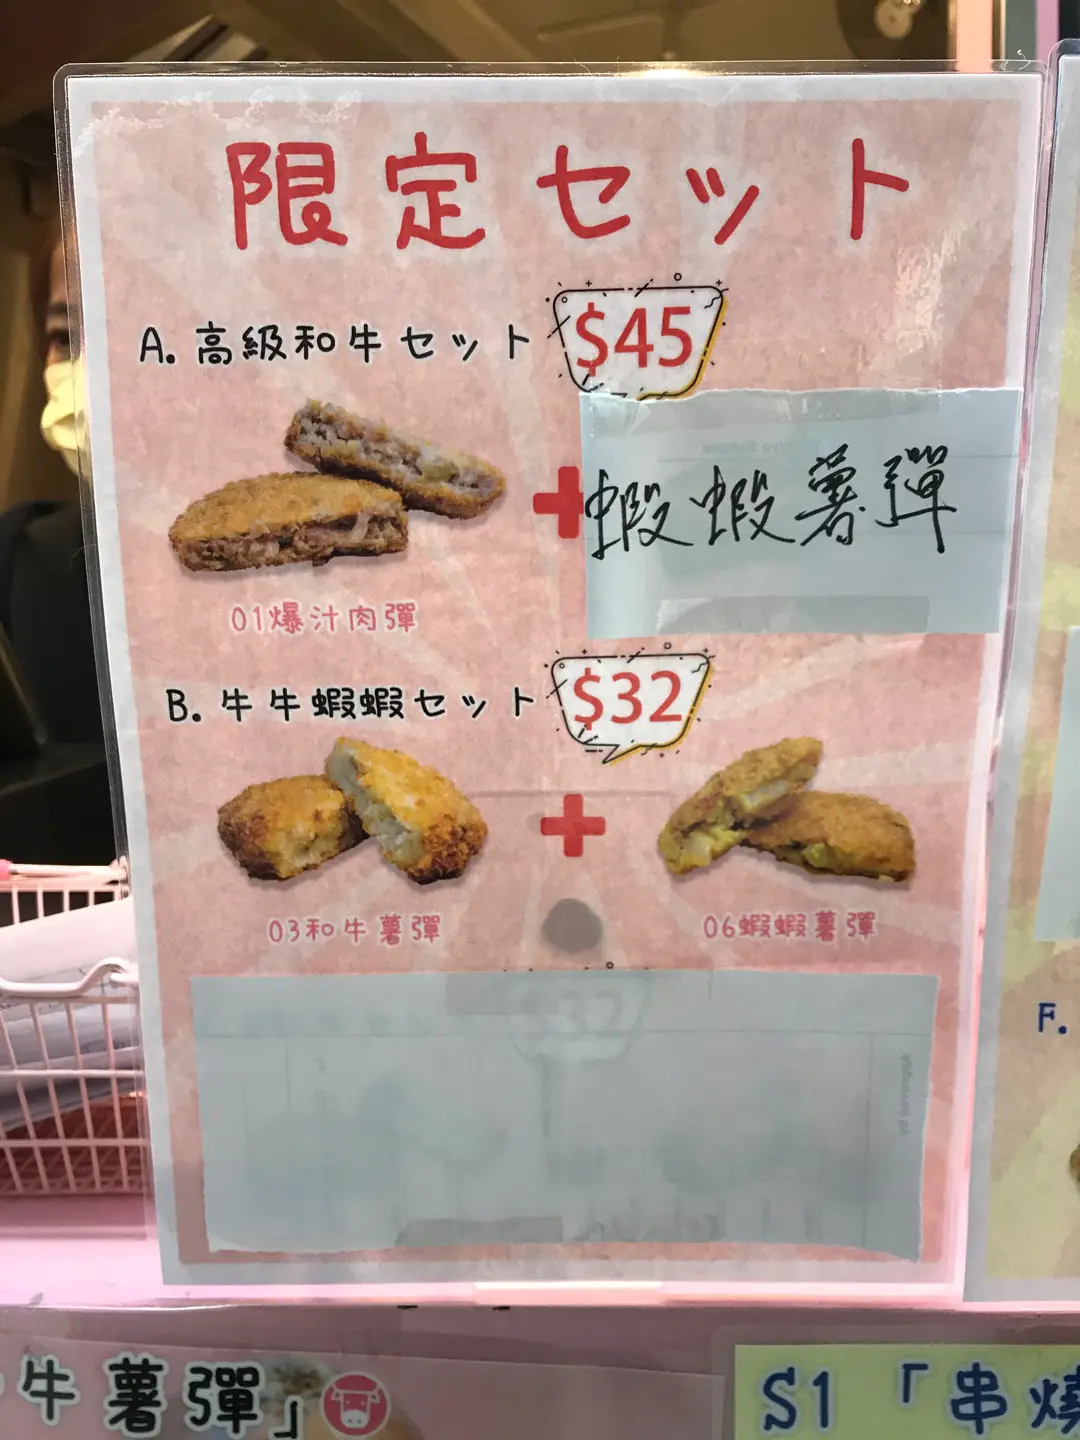 限定セット
A. 高級和牛セット $45
蝦蝦薯彈
01爆汁肉彈
B. 牛牛蝦蝦セット $32
03和牛薯彈
06蝦蝦薯彈
F.
牛薯彈」
S1「串燒